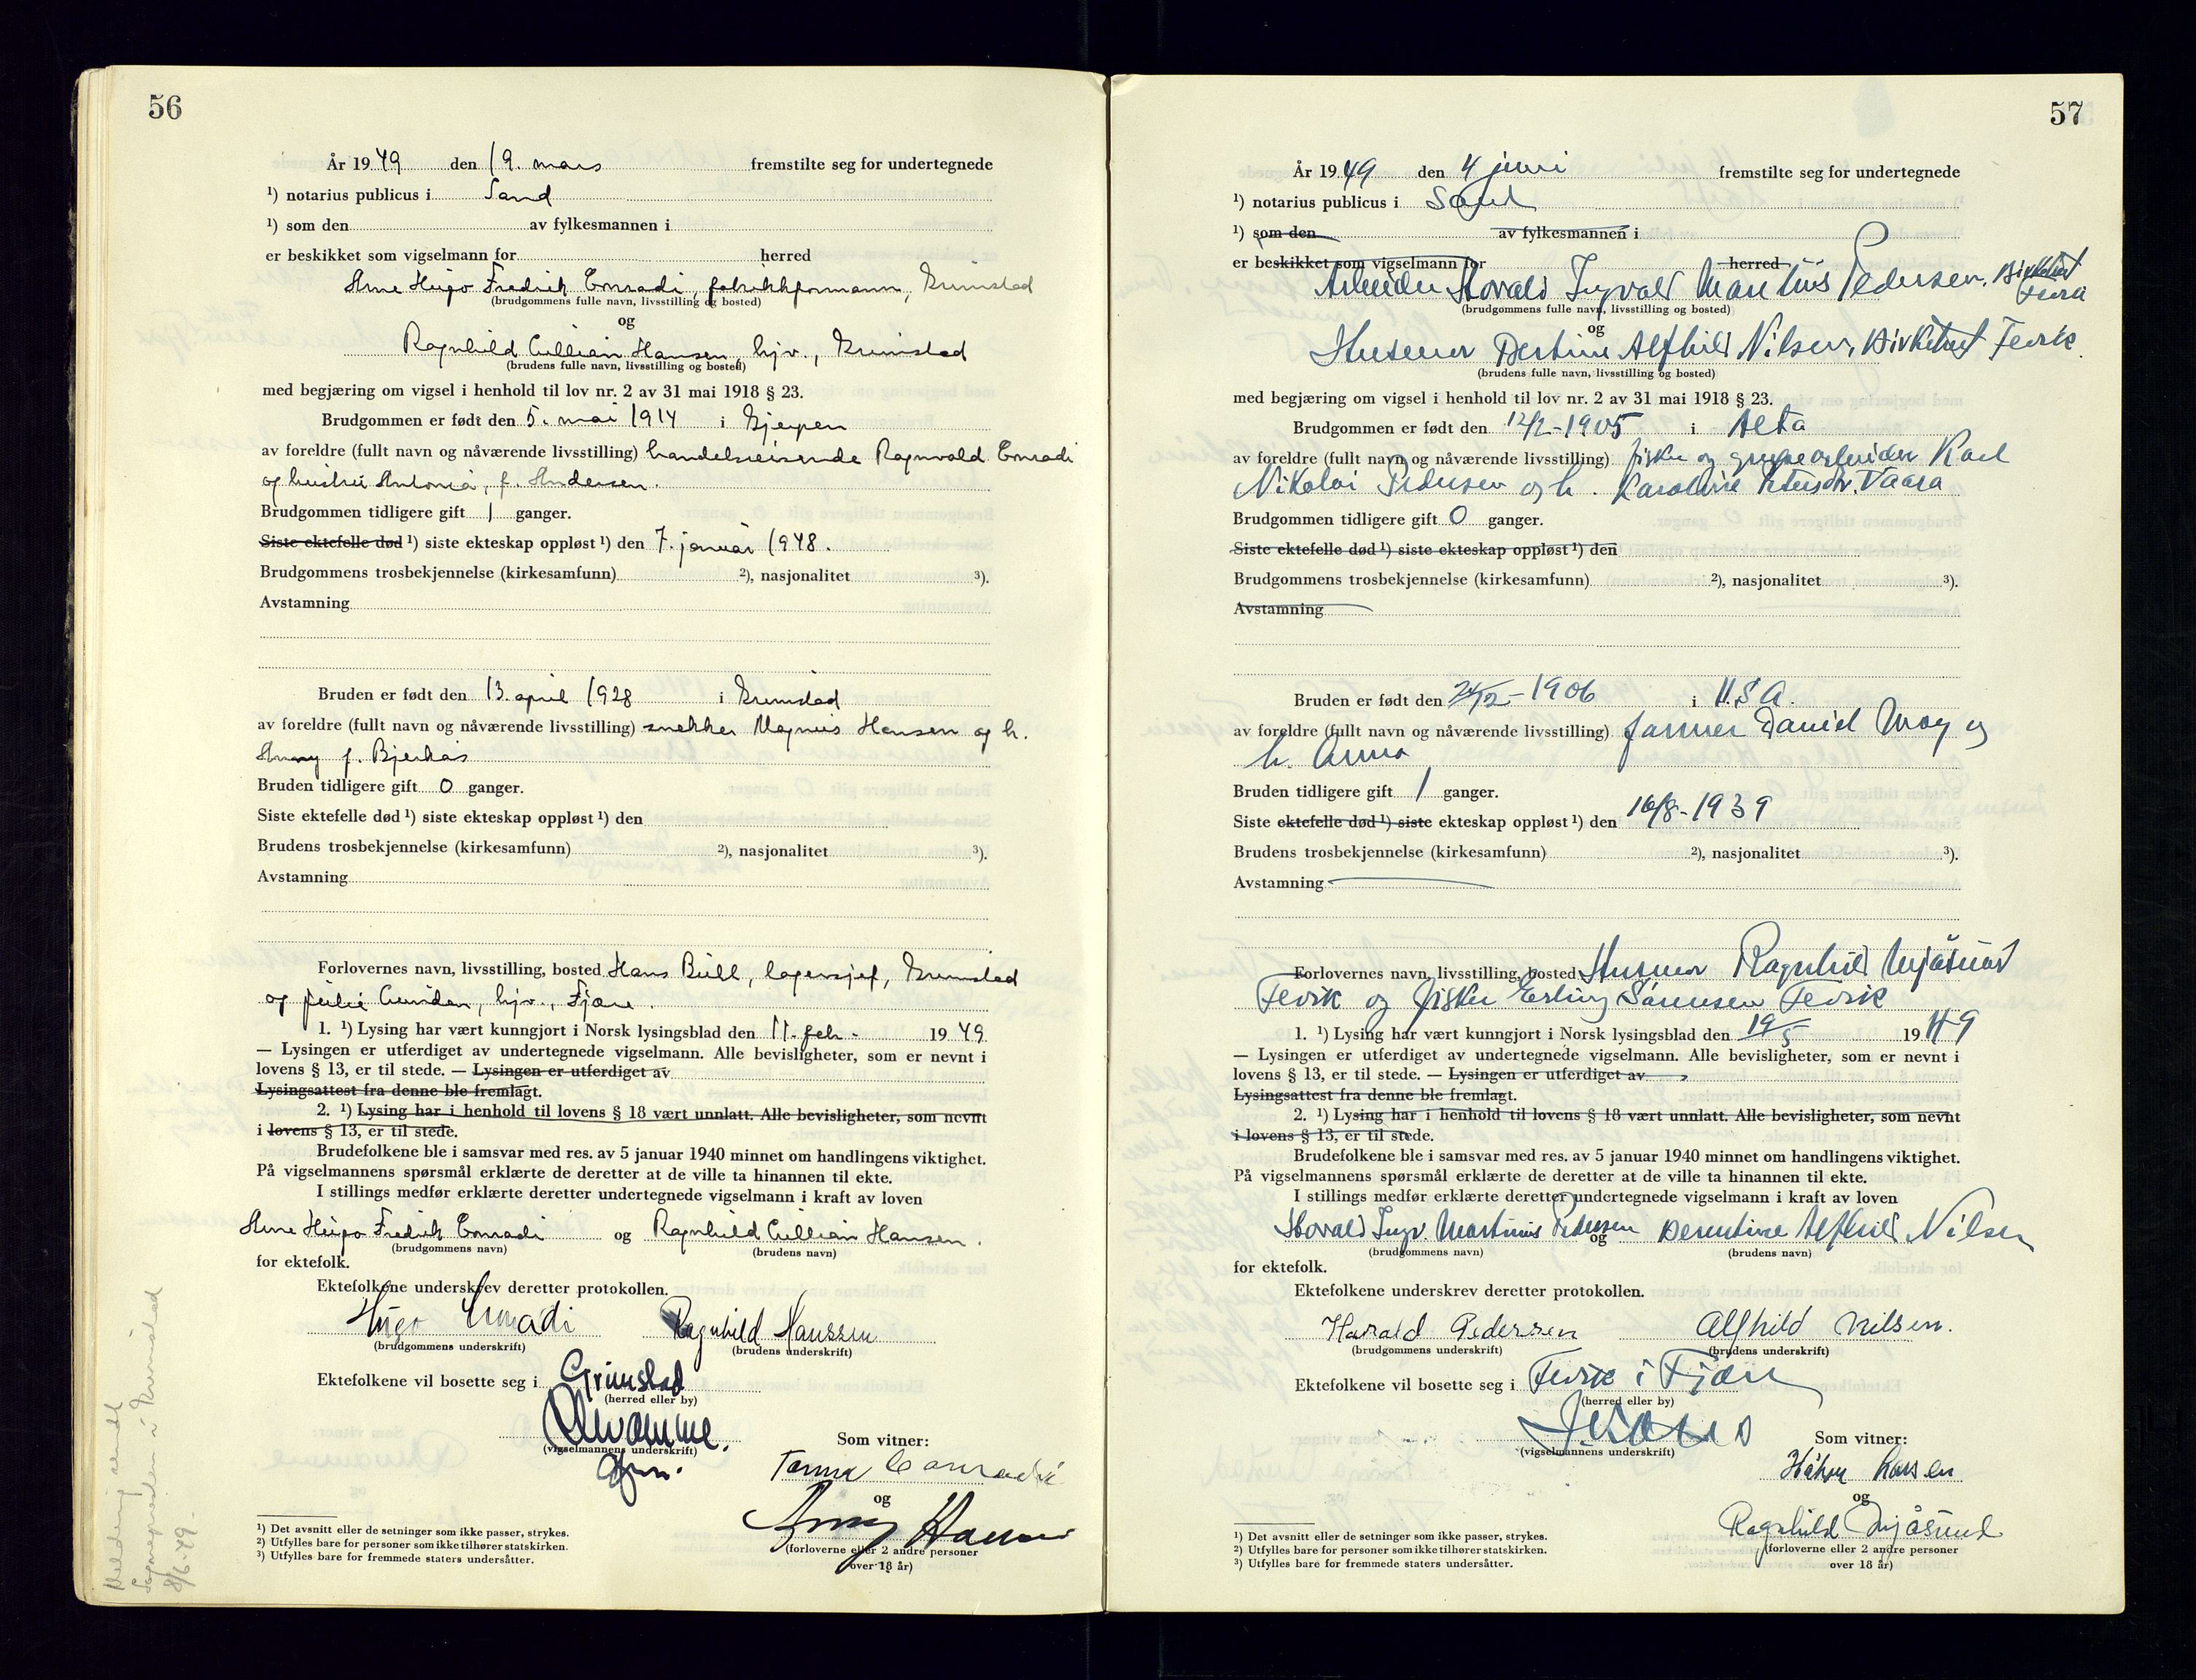 56
År 19 49 den 19. mars fremstilte seg for undertegnede
¹) notarius publicus i Sand
¹) som den av fylkesmannen i
er beskikket som vigselmann for herred
Arne Hugo Fredrik Conradi, fabrikkformann, Grimstad
(brudgommens fulle navn, livsstilling og bosted)
og
Ragnhild Lillian Hansen, hjv., Grimstad
(brudens fulle navn, livsstilling og bosted)
med begjæring om vigsel i henhold til lov nr. 2 av 31 mai 1918 § 23.
Brudgommen er født den 5. mai 1914 i Gjerpen
av foreldre (fullt navn og nåværende livsstilling) handelsreisende Ragnvald Conradi
og hustru Antonia, f. Andersen.
Brudgommen tidligere gift 1 ganger.
Siste ektefelle død ¹) siste ekteskap oppløst ¹) den 7. januar 1948.
Brudgommens trosbekjennelse (kirkesamfunn) ²), nasjonalitet ³).
Avstamning
Bruden er født den 13. april 1928 i Grimstad
av foreldre (fullt navn og nåværende livsstilling) snekker Magnus Hansen og h.
Anny f. Bjerkås
Bruden tidligere gift 0 ganger.
Siste ektefelle død ¹) siste ekteskap oppløst ¹) den
Brudens trosbekjennelse (kirkesamfunn) ²), nasjonalitet ³).
Avstamning
Forlovernes navn, livsstilling, bosted Hans Bull, lagersjef, Grimstad
og hjv., Fjære.
1. ¹) Lysing har vært kunngjort i Norsk lysingsblad den 11. feb. 19 49
— Lysingen er utferdiget av undertegnede vigselmann. Alle bevisligheter, som er nevnt i
lovens § 13, er til stede. — Lysingen er utferdiget av
Lysingsattest fra denne ble fremlagt.
2. ¹) Lysing har i henhold til lovens § 18 vært unnlatt. Alle bevisligheter, som nevnt
i lovens § 13, er til stede.
Brudefolkene ble i samsvar med res. av 5 januar 1940 minnet om handlingens viktighet.
På vigselmannens spørsmål erklærte de deretter at de ville ta hinannen til ekte.
I stillings medfør erklærte deretter undertegnede vigselmann i kraft av loven
Arne Hugo Fredrik Conradi og Ragnhild Lillian Hansen.
(brudgommens navn) (brudens navn)
for ektefolk.
Ektefolkene underskrev deretter protokollen.
Hugo Conradi Ragnhild Hanssen
(brudgommens underskrift) (brudens underskrift)
Ektefolkene vil bosette seg i Grimstad
(herred eller by)
(vigselmannens underskrift)
Som vitner:
Conradi
og
Anny Hansen
(forloverne eller 2 andre personer
over 18 år)
¹) Det avsnitt eller de setninger som ikke passer, strykes.
²) Utfylles bare for personer som ikke tilhører statskirken.
³) Utfylles bare for fremmede staters undersåtter.
Melding sendt
Sognepresten i Grimstad
8/6-49-
57
År 19 49 den 4 juni fremstilte seg for undertegnede
¹) notarius publicus i Sand
¹) som den av fylkesmannen i
er beskikket som vigselmann for herred
Arbeider Harald Ingvald Martinus Pedersen, Birketveit Fevik
(brudgommens fulle navn, livsstilling og bosted)
og
Husmor Alfhild Nilsen, Birketveit Fevik
(brudens fulle navn, livsstilling og bosted)
med begjæring om vigsel i henhold til lov nr. 2 av 31 mai 1918 § 23.
Brudgommen er født den 12/2-1905 i Alta
av foreldre (fullt navn og nåværende livsstilling) fisker og grubearbeider Karl
Nikolai Pedersen og h. Karoline Petersdtr. Vaara
Brudgommen tidligere gift 0 ganger.
Siste ektefelle død ¹) siste ekteskap oppløst ¹) den
Brudgommens trosbekjennelse (kirkesamfunn) ²), nasjonalitet ³).
Avstamning
Bruden er født den 24/2-1906 i U.S.A.
av foreldre (fullt navn og nåværende livsstilling) farmer Daniel Moy og
h. Anna
Bruden tidligere gift 1 ganger.
Siste ektefelle død ¹) siste ekteskap oppløst ¹) den 16/8-1939
Brudens trosbekjennelse (kirkesamfunn) ²), nasjonalitet ³).
Avstamning
Forlovernes navn, livsstilling, bosted Husmor Ragnhild Mjåsund
Fevik og fisker Erling Sørensen Fevik
1. ¹) Lysing har vært kunngjort i Norsk lysingsblad den 19/5 19 49
— Lysingen er utferdiget av undertegnede vigselmann. Alle bevisligheter, som er nevnt i
lovens § 13, er til stede. — Lysingen er utferdiget av
Lysingsattest fra denne ble fremlagt.
2. ¹) Lysing har i henhold til lovens § 18 vært unnlatt. Alle bevisligheter, som nevnt
i lovens § 13, er til stede.
Brudefolkene ble i samsvar med res. av 5 januar 1940 minnet om handlingens viktighet.
På vigselmannens spørsmål erklærte de deretter at de ville ta hinannen til ekte.
I stillings medfør erklærte deretter undertegnede vigselmann i kraft av loven
Harald Ingv. Martinus Pedersen og Alfhild Nilsen
(brudgommens navn) (brudens navn)
for ektefolk.
Ektefolkene underskrev deretter protokollen.
Harald Pedersen Alfhild Nilsen.
(brudgommens underskrift) (brudens underskrift)
Ektefolkene vil bosette seg i Fevik i Fjære
(herred eller by)
(vigselmannens underskrift)
Som vitner:
Håkon Larsen
og
Ragnhild Mjåsund
(forloverne eller 2 andre personer
over 18 år)
¹) Det avsnitt eller de setninger som ikke passer, strykes.
²) Utfylles bare for personer som ikke tilhører statskirken.
³) Utfylles bare for fremmede staters undersåtter.